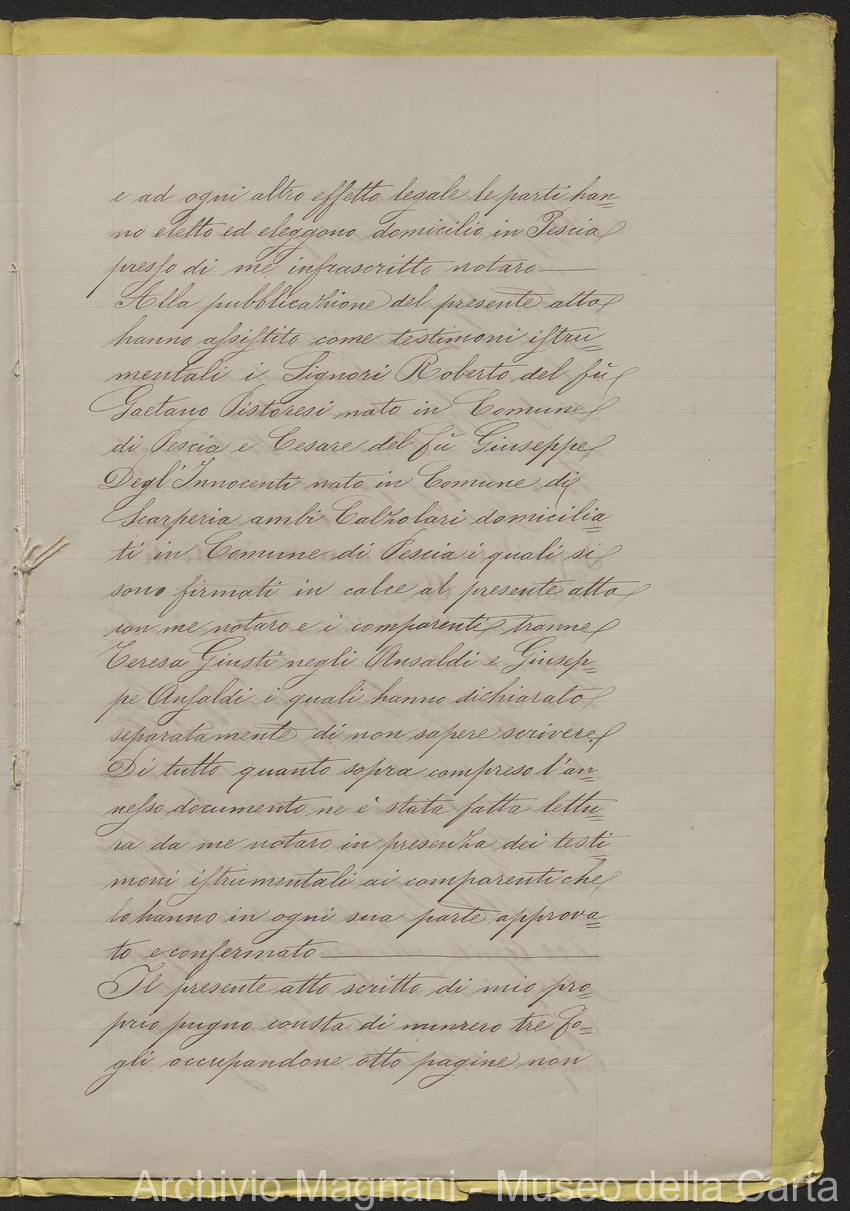 e ad ogni altro effetto legale le parti han=
no eletto ed eleggono domicilio in Pescia
presso di me infrascritto notaro
Alla pubblicazione del presente atto
hanno assistito come testimoni istru=
mentali i Signori Roberto del fù
Gaetano Pistoresi nato in Comune
di Pescia e Cesare del fù Giuseppe
Degl'Innocenti nato in Comune di
Scarperia ambi Calzolari domicilia=
ti in Comune di Pescia i quali si
sono firmati in calce al presente atto
con me notaro e i comparenti tranne
Teresa Giusti negli Ansaldi e Giusep=
pe Ansaldi i quali hanno dichiarato
separatamente di non sapere scrivere.
Di tutto quanto sopra compreso l'an=
nesso documento ne è stata fatta lettu=
ra da me notaro in presenza dei testi=
moni istrumentali ai comparenti che
lo hanno in ogni sua parte approva=
to e confermato
Il presente atto scritto di mio pro=
prio pugno consta di numero tre fo=
gli occupandone otto pagine non
Archivio Magnani - Museo della Carta